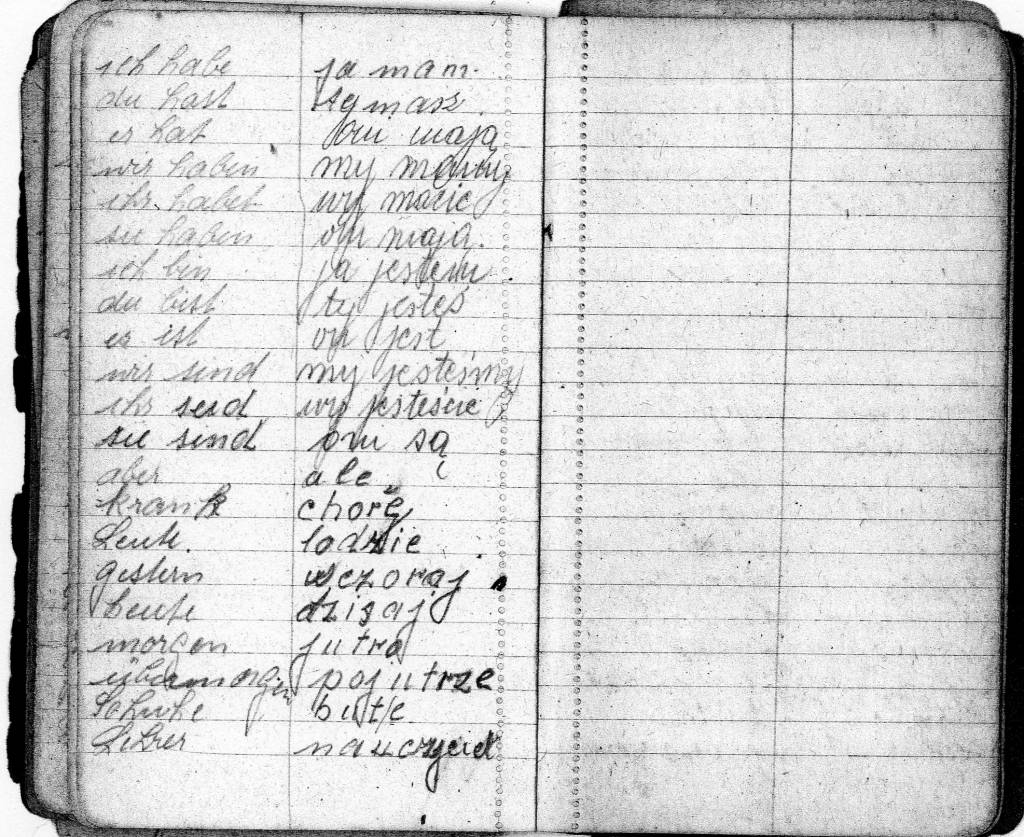 ich habe ja mam.
du hast ty masz.
er hat oni mają
wir haben my mamy
ihr habet wy macie
sie haben oni mają.
ich bin ja jestem.
du bist ty jesteś
er ist on jest
wir sind my jesteśmy
ihr seid wy jesteście
sie sind oni są
aber ale
krank chory
Leute. lodzie
gestern wczoraj.
heute dzisaj
morgen jutro
übermorgen pojutrze
Schuhe